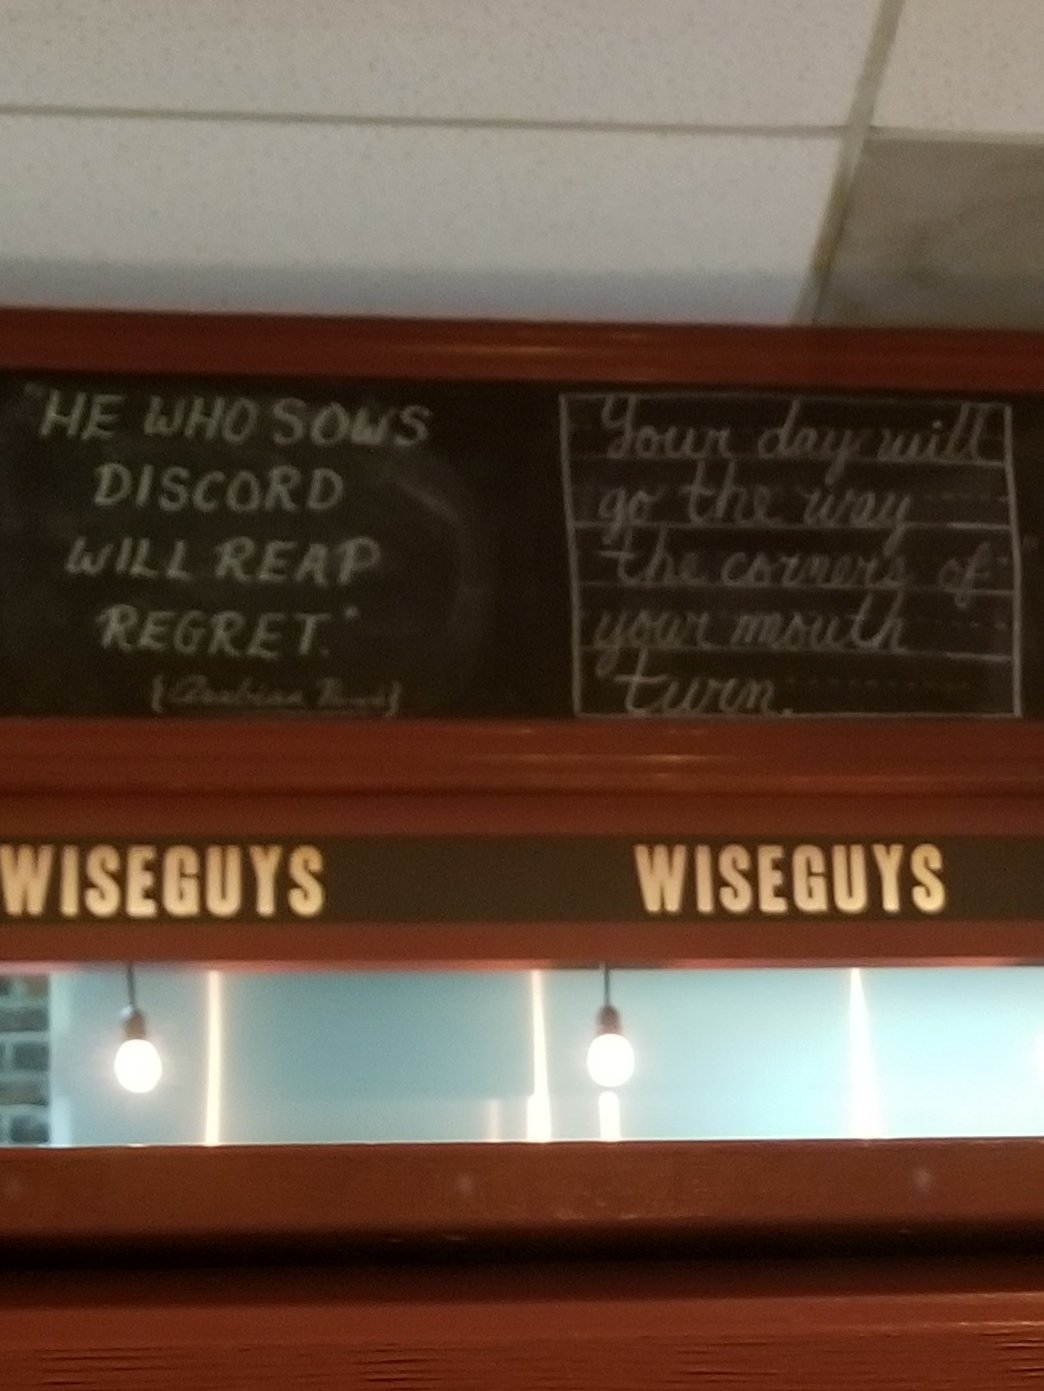 "HE WHO SOWS
DISCORD
WILL REAP
REGRET."
{Arabian Prov}
Your day will
go the way
the corners of
your mouth
turn.
WISEGUYS
WISEGUYS